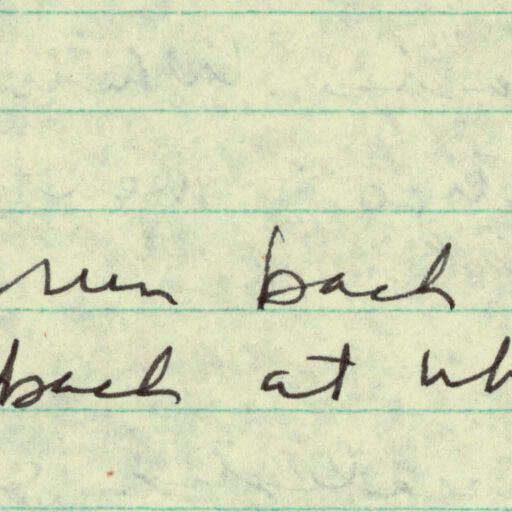 run back
back at wh